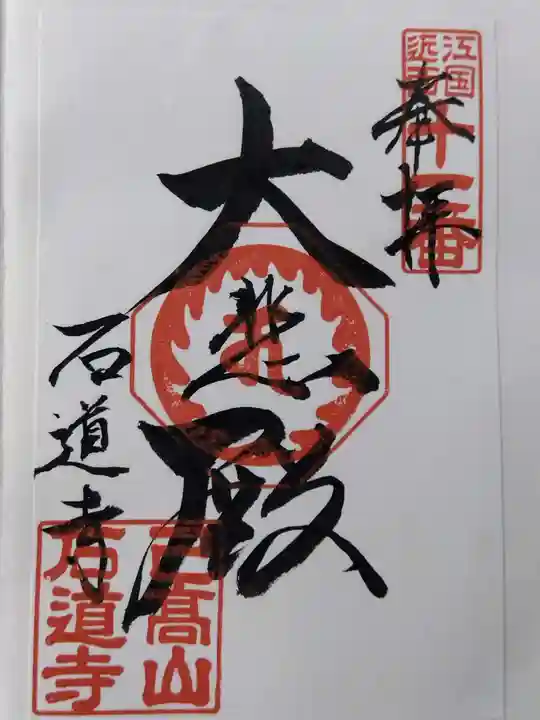 奉拝
近江国
十一番
大悲殿
石道寺
己高山
石道寺